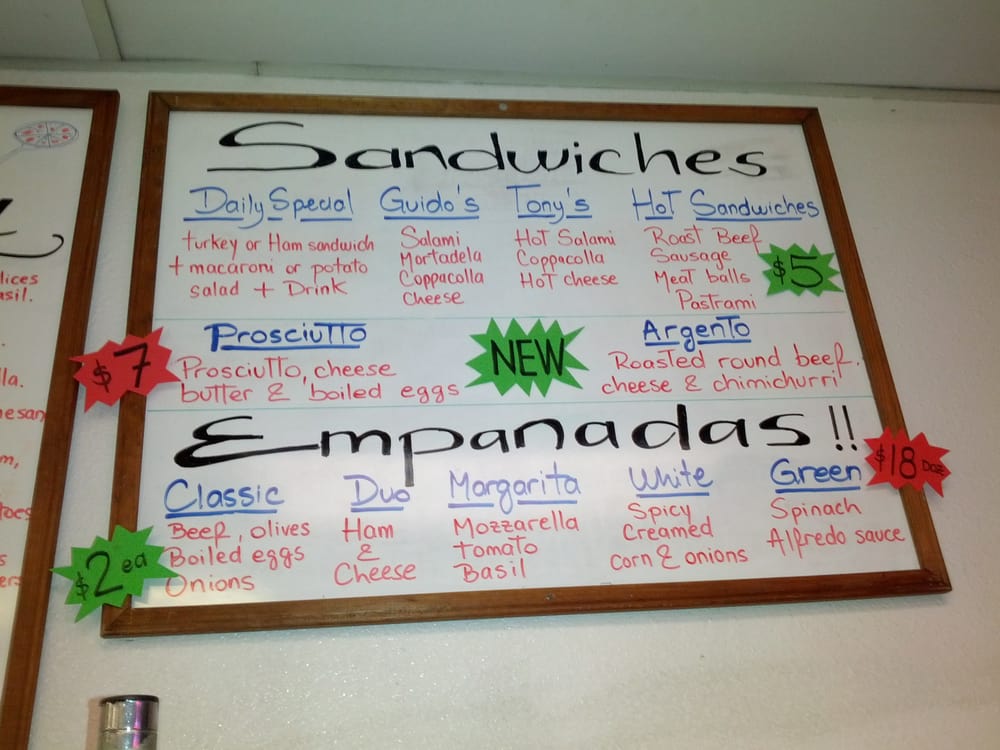 Sandwiches
Daily Special
turkey or Ham sandwich
+ macaroni or potato
salad + Drink
Guido's
Salami
Mortadela
Coppacolla
cheese
Tony's
Hot Salami
Coppacolla
Hot cheese
Hot Sandwiches
Roast Beef
Sausage
Meat balls
Pastrami
$5
$7
Prosciutto
Prosciutto, cheese
butter & boiled eggs
NEW
Argento
Roasted round beef.
cheese & chimichurri
Empanadas!!
$18 Doz
Classic
Beef, olives
Boiled eggs
Onions
$2 ea
Duo
Ham
&
Cheese
Margarita
Mozzarella
tomato
Basil
White
Spicy
Creamed
corn & onions
Green
Spinach
Alfredo sauce